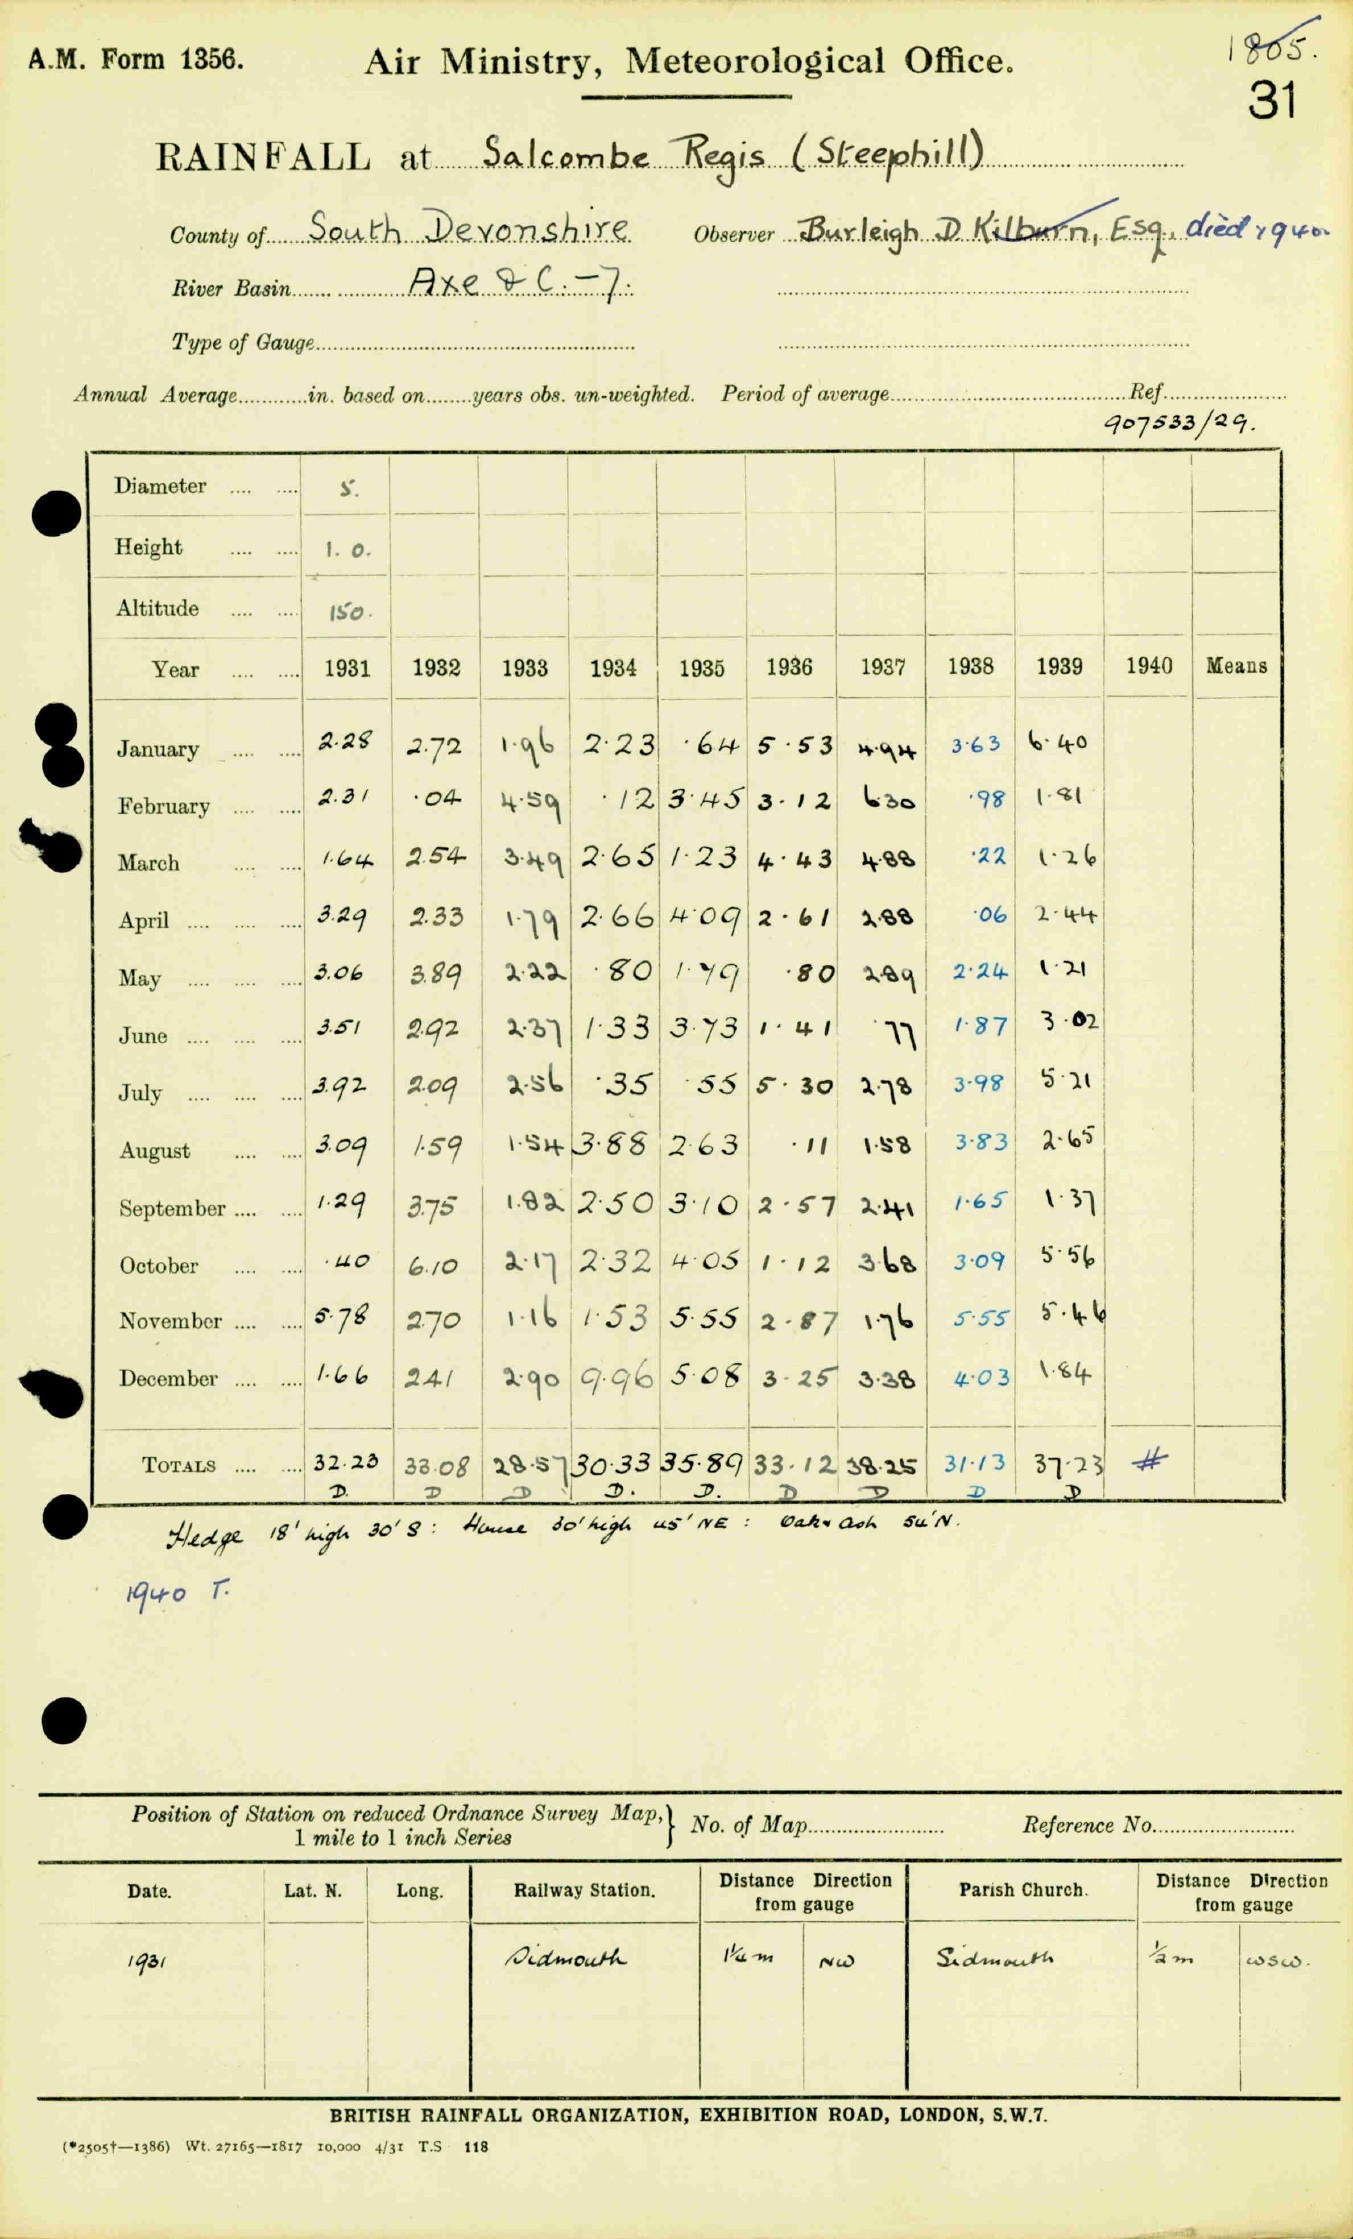 A.M. Form 1356. Air Ministry, Meteorological Office. 1805.
31
RAINFALL at Salcombe Regis (Steephill)
County of South Devonshire Observer Burleigh D Kilburn, Esq. died 1940.
River Basin Axe & C. - 7.
Type of Gauge
Annual Average in. based on years obs. un-weighted. Period of average Ref.
907533/29.
Diameter 5.
Height 1. 0.
Altitude 150.
Year 1931 1932 1933 1934 1935 1936 1937 1938 1939 1940 Means
January 2.28 2.72 1.96 2.23 .64 5.53 4.94 3.63 6.40
February 2.31 .04 4.59 .12 3.45 3.12 6.30 .98 1.81
March 1.64 2.54 3.49 2.65 1.23 4.43 4.88 .22 1.26
April 3.29 2.33 1.79 2.66 4.09 2.61 2.88 .06 2.44
May 3.06 3.89 2.22 .80 1.79 .80 2.89 2.24 1.21
June 3.51 2.92 2.37 1.33 3.73 1.41 .77 1.87 3.02
July 3.92 2.09 2.56 .35 .55 5.30 2.78 3.98 5.21
August 3.09 1.59 1.54 3.88 2.63 .11 1.58 3.83 2.65
September 1.29 3.75 1.82 2.50 3.10 2.57 2.41 1.65 1.37
October .40 6.10 2.17 2.32 4.05 1.12 3.68 3.09 5.56
November 5.78 2.70 1.16 1.53 5.55 2.87 1.76 5.55 5.46
December 1.66 2.41 2.90 9.96 5.08 3.25 3.38 4.03 1.84
TOTALS 32.23 33.08 28.57 30.33 35.89 33.12 38.25 31.13 37.23 #
D. D D D. D. D D D D
Hedge 18' high 30' S: House 30' high 45' NE: Oak & Ash 54' N.
1940 T.
Position of Station on reduced Ordnance Survey Map, 1 mile to 1 inch Series } No. of Map Reference No.
Date. Lat. N. Long. Railway Station. Distance Direction from gauge Parish Church. Distance Direction from gauge
1931 Sidmouth 1¼ m NW Sidmouth ½ m WSW.
BRITISH RAINFALL ORGANIZATION, EXHIBITION ROAD, LONDON, S.W.7.
(*2505†—1386) Wt. 27165—1817 10,000 4/31 T.S 118